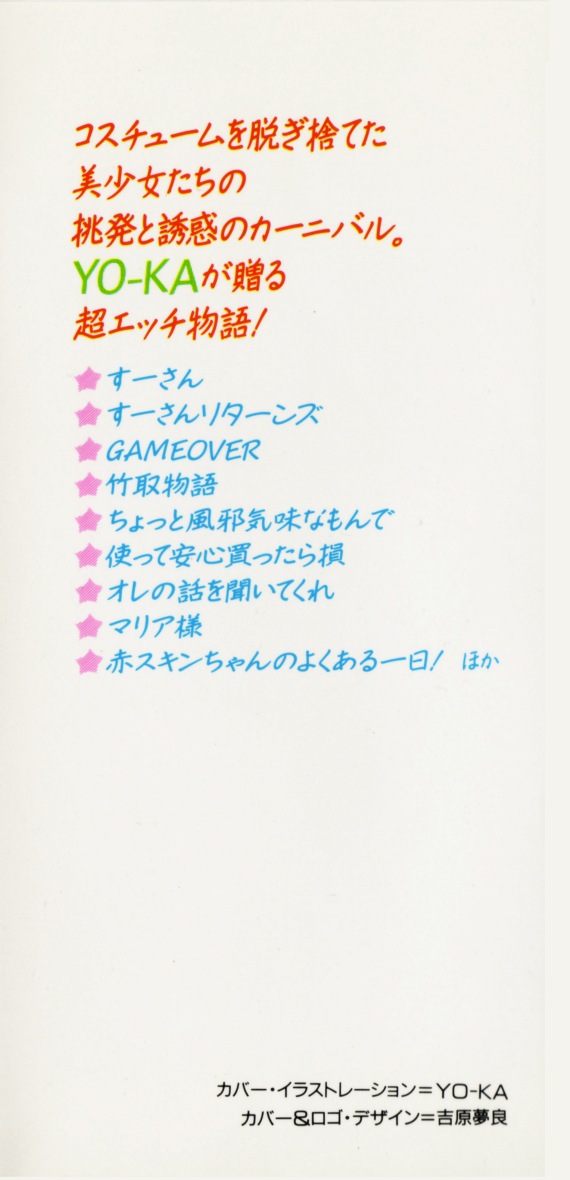 コスチュームを脱ぎ捨てた
美少女たちの
挑発と誘惑のカーニバル。
YO-KAが贈る
超エッチ物語!
すーさん
すーさんリターンズ
GAMEOVER
竹取物語
ちょっと風邪気味なもんで
使って安心買ったら損
オレの話を聞いてくれ
マリア様
赤スキンちゃんのよくある一日! ほか
カバー・イラストレーション=YO-KA
カバー&ロゴ・デザイン=吉原夢良